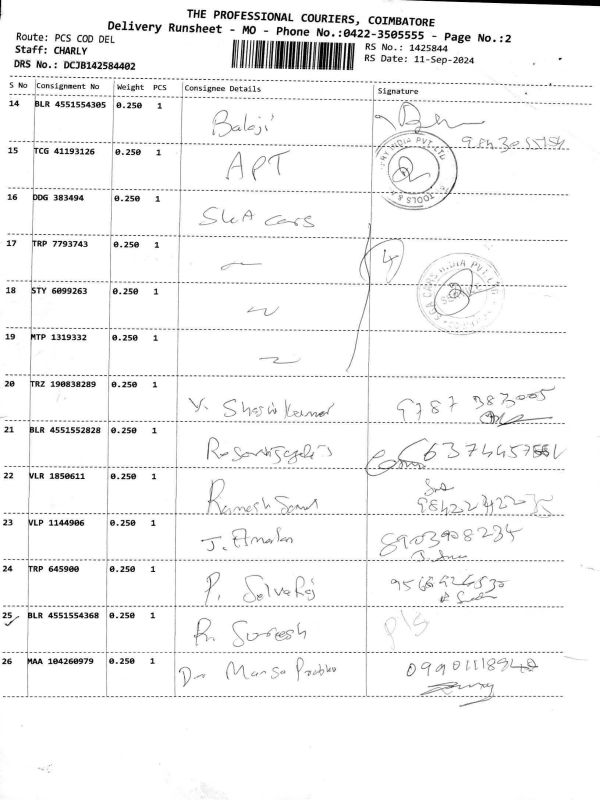 THE PROFESSIONAL COURIERS, COIMBATORE
Delivery Runsheet - MO - Phone No.:0422-3505555 - Page No.:2
Route: PCS COD DEL
RS No.: 1425844
Staff: CHARLY
RS Date: 11-Sep-2024
DRS No.: DCJB142584402
S No Consignment No Weight PCS Consignee Details Signature
14 BLR 4551554305 0.250 1 Balaji
15 TCG 41193126 0.250 1 APT
16 DDG 383494 0.250 1 SKA cars
17 TRP 7793743 0.250 1 4
18 STY 6099263 0.250 1
19 MTP 1319332 0.250 1
20 TRZ 190838289 0.250 1 9787 383005
21 BLR 4551552828 0.250 1
22 VLR 1850611 0.250 1 Ramesh
23 VLP 1144906 0.250 1 J. 8903908234
24 TRP 645900 0.250 1 P. Selvaraj
25 BLR 4551554368 0.250 1 Suresh P/S
26 MAA 104260979 0.250 1